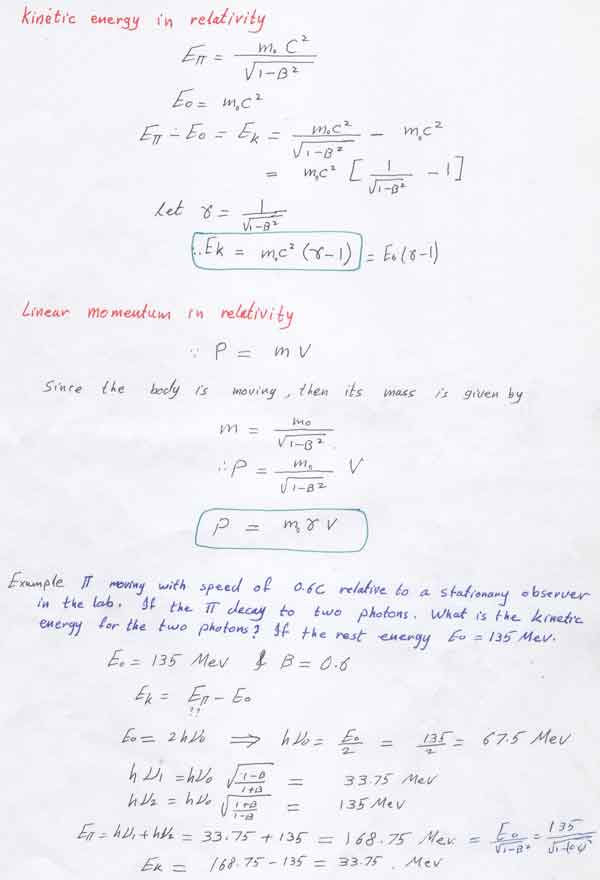 Kinetic energy in relativity
Eπ = m₀ C² / √(1-B²)
E₀ = m₀c²
Eπ - E₀ = Ek = m₀c² / √(1-B²) - m₀c²
= m₀c² [ 1 / √(1-B²) - 1 ]
Let γ = 1 / √(1-B²)
∴ Ek = m₀c² (γ-1) = E₀(γ-1)
Linear momentum in relativity
∵ P = m V
Since the body is moving, then its mass is given by
m = m₀ / √(1-B²)
∴ P = m₀ / √(1-B²) V
P = m₀ γ V
Example π moving with speed of 0.6C relative to a stationary observer
in the lab. If the π decay to two photons. What is the kinetic
energy for the two photons? If the rest energy E₀ = 135 Mev.
E₀ = 135 Mev & B = 0.6
Ek = Eπ - E₀
??
E₀ = 2hν₀ ⟹ hν₀ = E₀/2 = 135/2 = 67.5 Mev
hν₁ = hν₀ √((1-B)/(1+B)) = 33.75 Mev
hν₂ = hν₀ √((1+B)/(1-B)) = 135 Mev
Eπ = hν₁ + hν₂ = 33.75 + 135 = 168.75 Mev = E₀ / √(1-B²) = 135
Ek = 168.75 - 135 = 33.75 . Mev